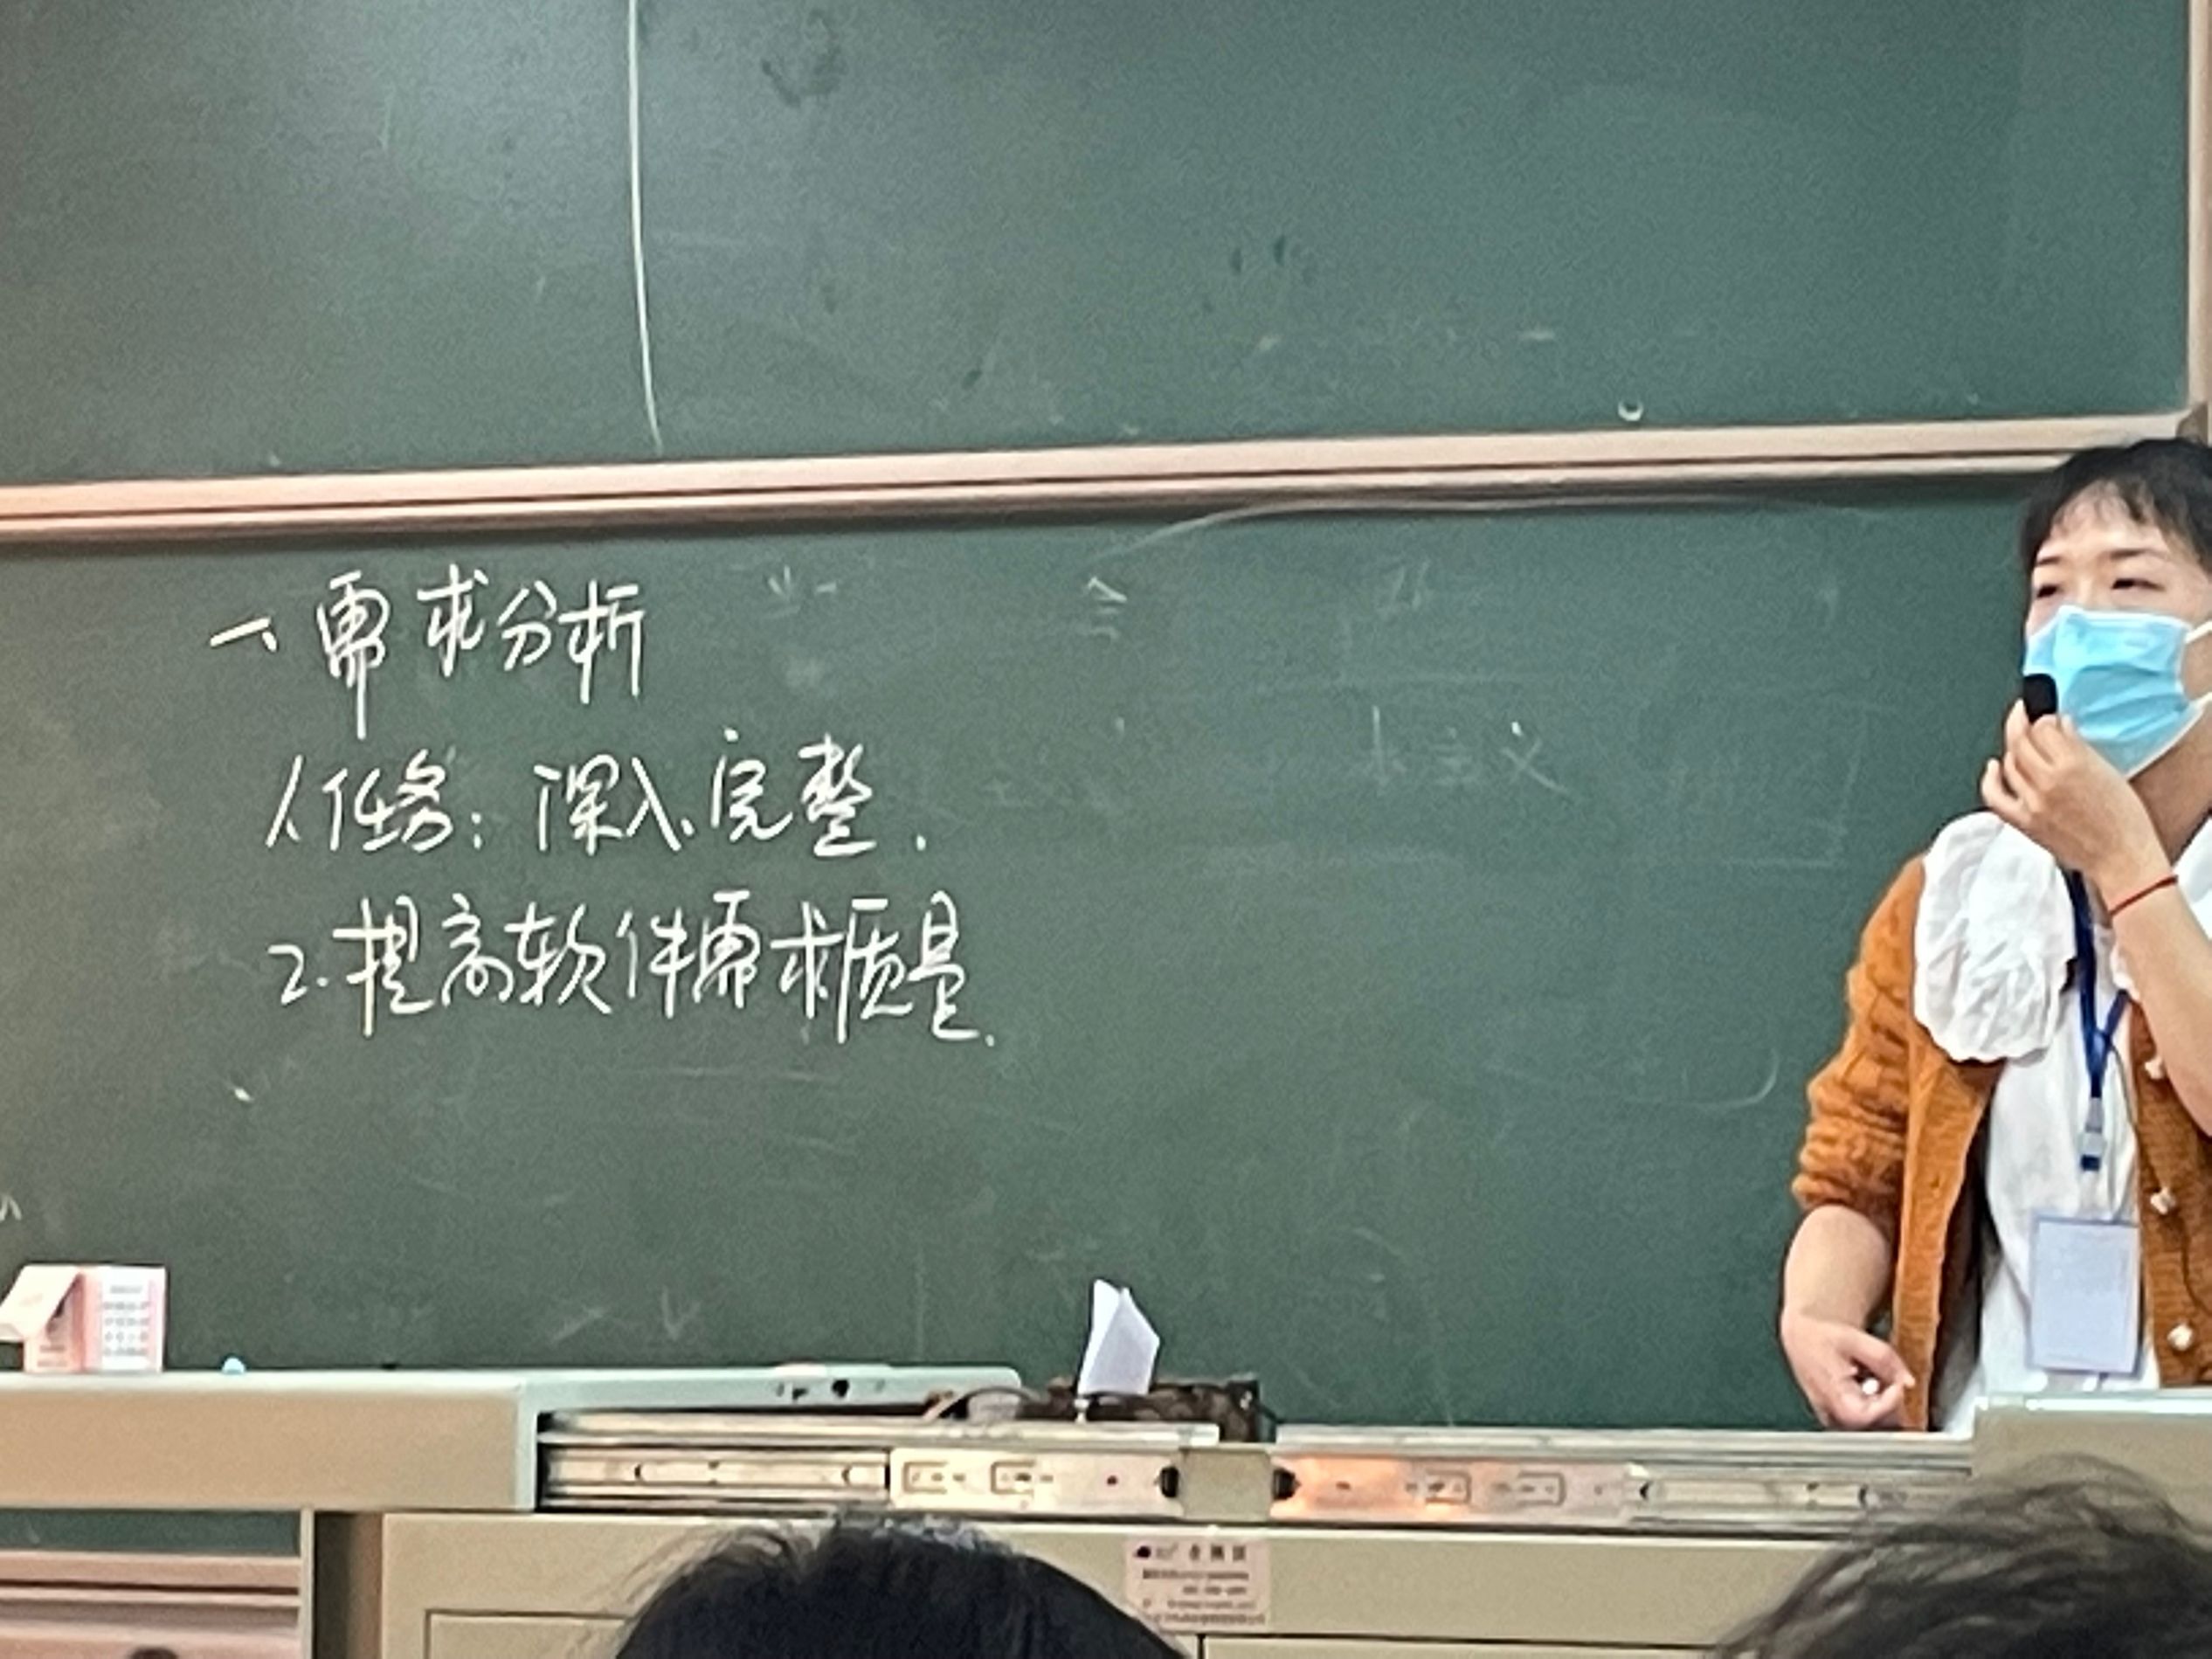 一、需求分析
1、任务：深入、完整.
2.提高软件需求质量.
主义